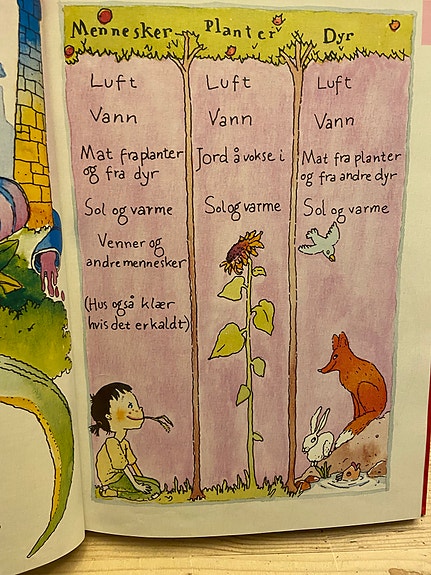 Mennesker
Luft
Vann
Mat fra planter
og fra dyr
Sol og varme
Venner og
andre mennesker
(Hus også klær
hvis det er kaldt)
Planter
Luft
Vann
Jord å vokse i
Sol og varme
Dyr
Luft
Vann
Mat fra planter
og fra andre dyr
Sol og varme